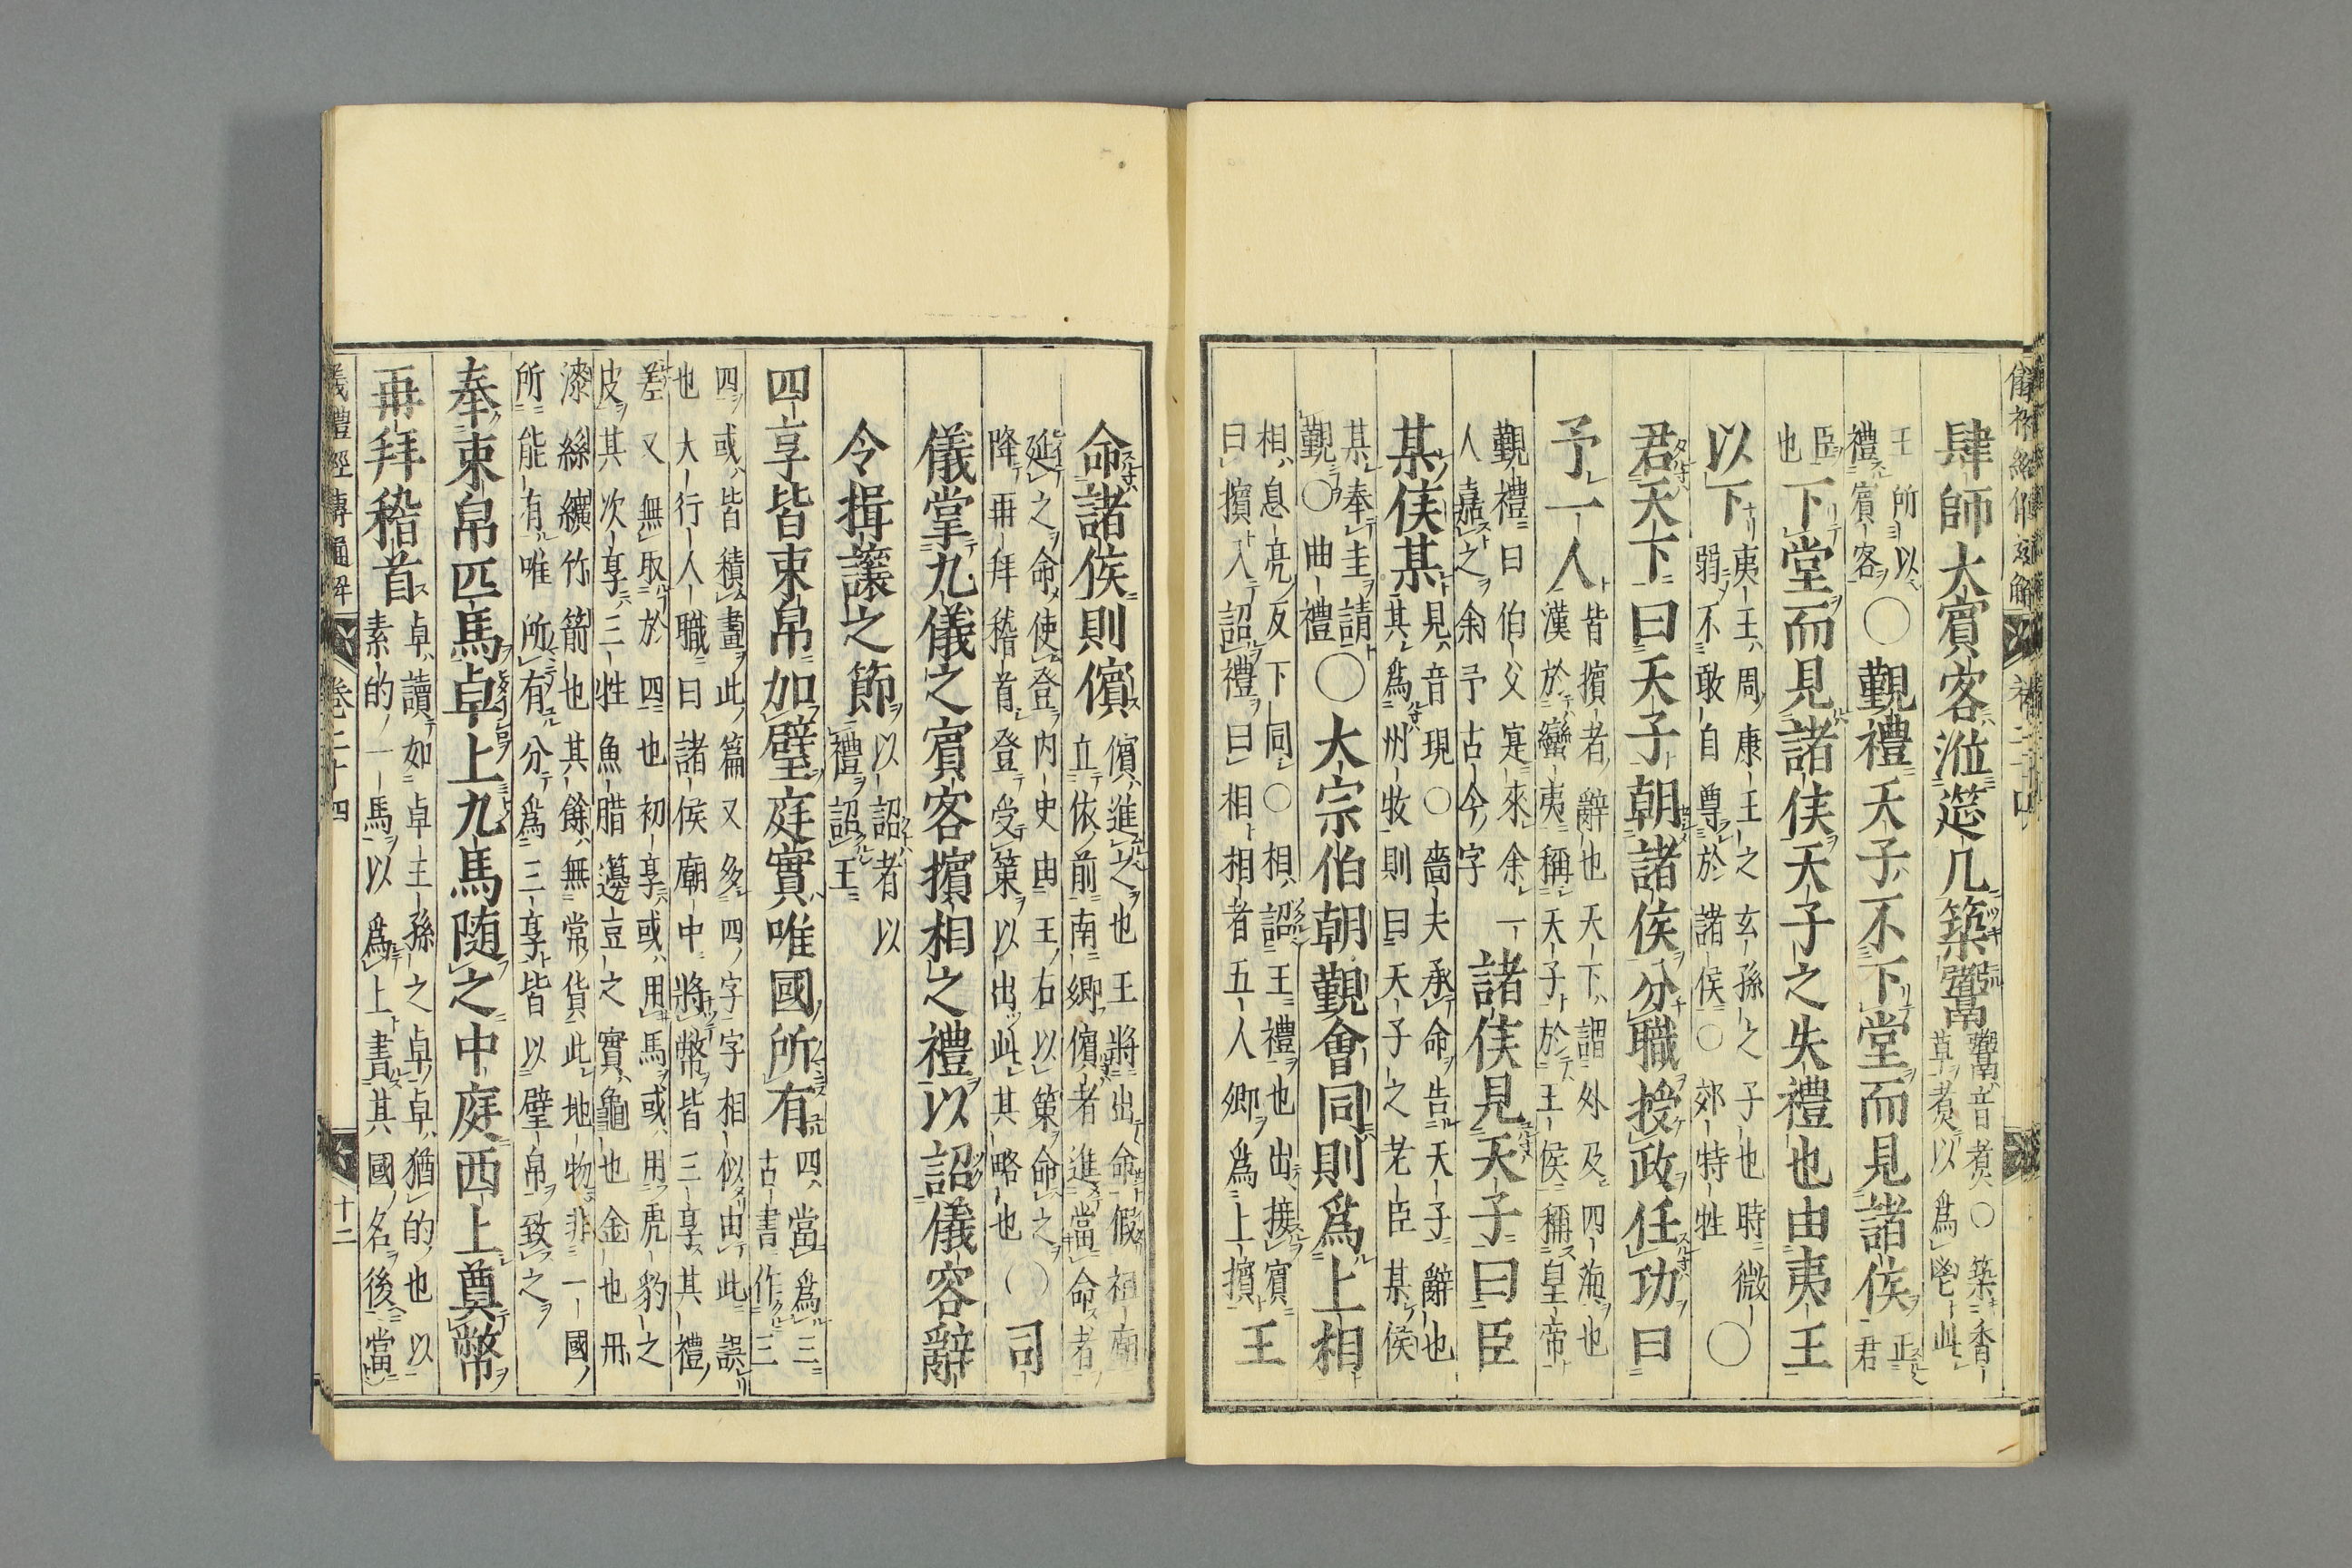 肆師大賓客涖筵几築鬻鬻音煮○築香
草煮以爲鬯此
王所以
禮賓客○覲禮天子不下堂而見諸侯正
君
臣
也下堂而見諸侯天子之失禮也由夷王
以下夷王周康王之玄孫之子也時微
弱不敢自尊於諸侯○郊特牲○
君天下曰天子朝諸侯分職授政任功曰
予一人皆擯者辭也天下謂外及四海也
漢於蠻夷稱天子於王侯稱皇帝
覲禮曰伯父寔來余一
人嘉之余予古今字諸侯見天子曰臣
某侯某見音現○嗇夫承命告天子辭也
其爲州牧則曰天子之老臣某侯
某奉圭請
覲○曲禮○大宗伯朝覲會同則爲上相
相息亮反下同○相詔王禮也出接賓
曰擯入詔禮曰相相者五人卿爲上擯王
命諸侯則儐儐進之也王將出命假祖廟
立依前南鄉儐者進當命者
延之命使登內史由王右以策命之
降再拜稽首登受策以出此其略也○司
儀掌九儀之賓客擯相之禮以詔儀容辭
令揖讓之節以詔者以
禮詔王
四享皆束帛加璧庭實唯國所有四當爲三
古書作三
四或皆積畫此篇又多四字字相似由此誤
也大行人職曰諸侯廟中將幣皆三享其禮
差又無取於四也初享或用馬或用虎豹之
皮其次享三牲魚腊籩豆之實龜也金也丹
漆絲纊竹箭也其餘無常貨此地物非一國
所能有唯所有分爲三享皆以璧帛致之
奉束帛匹馬卓上九馬隨之中庭西上奠幣
再拜稽首卓讀如卓王孫之卓卓猶的也以
素的一馬以爲上書其國名後當
儀禮經傳通解 卷二十四 十二